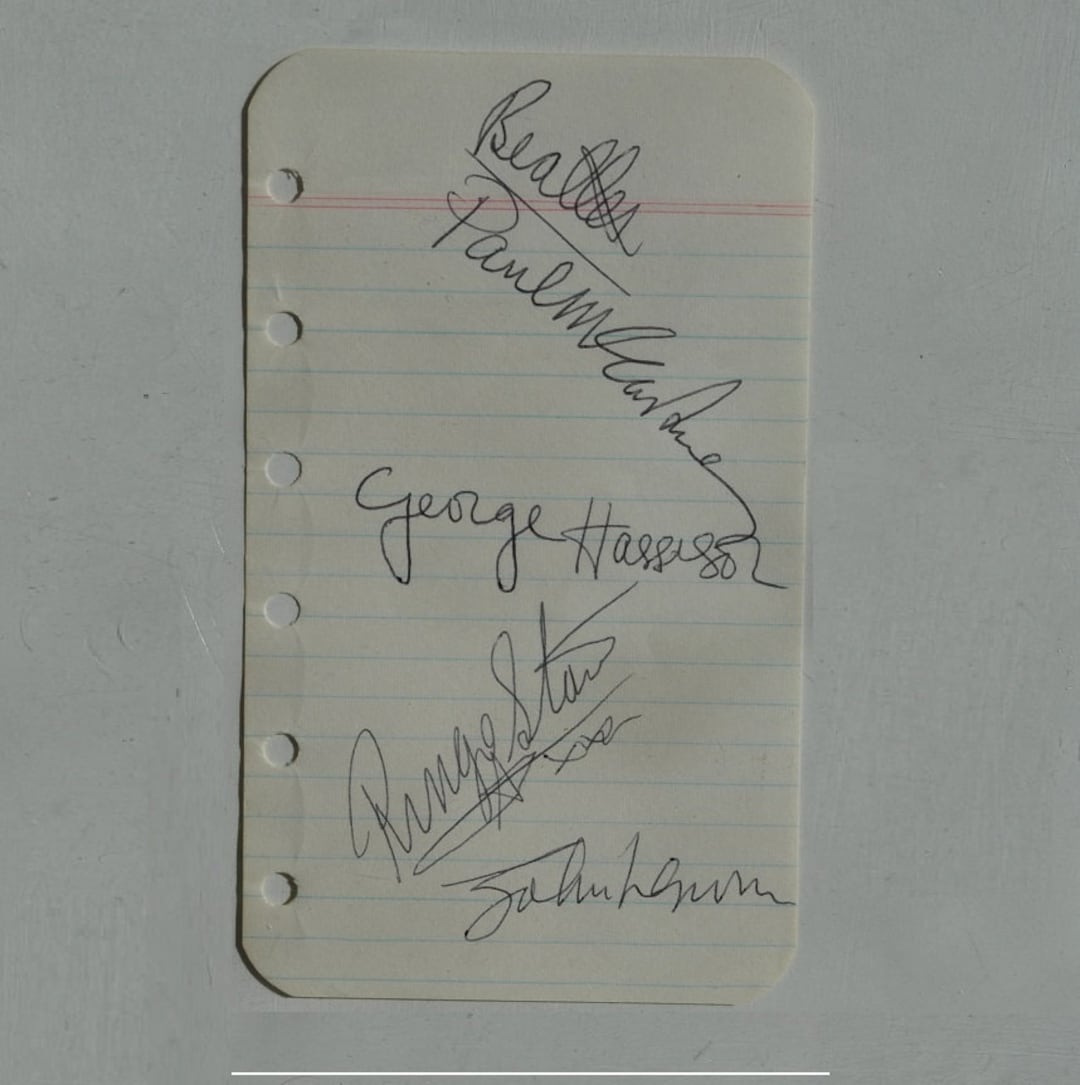 Beatles
Paul McCartney
George Harrison
Ringo Starr
xxx
John Lennon